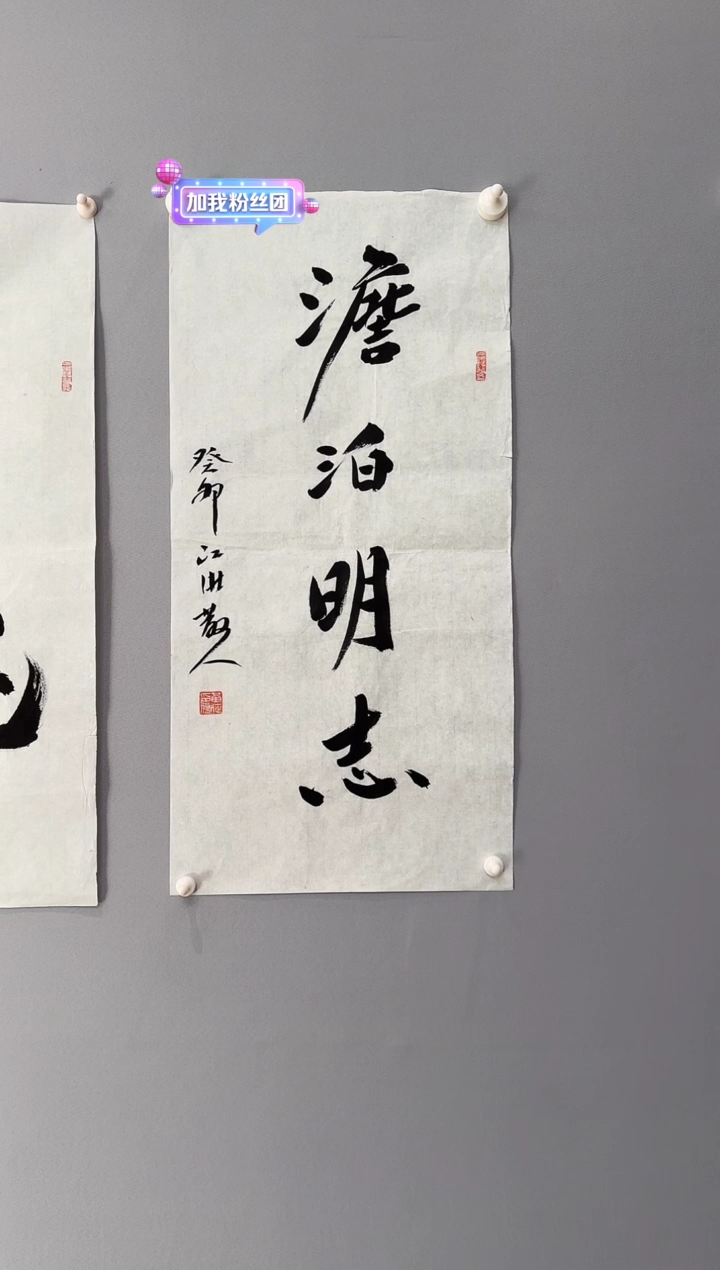 加我粉丝团
澹泊明志
癸卯江洲散人